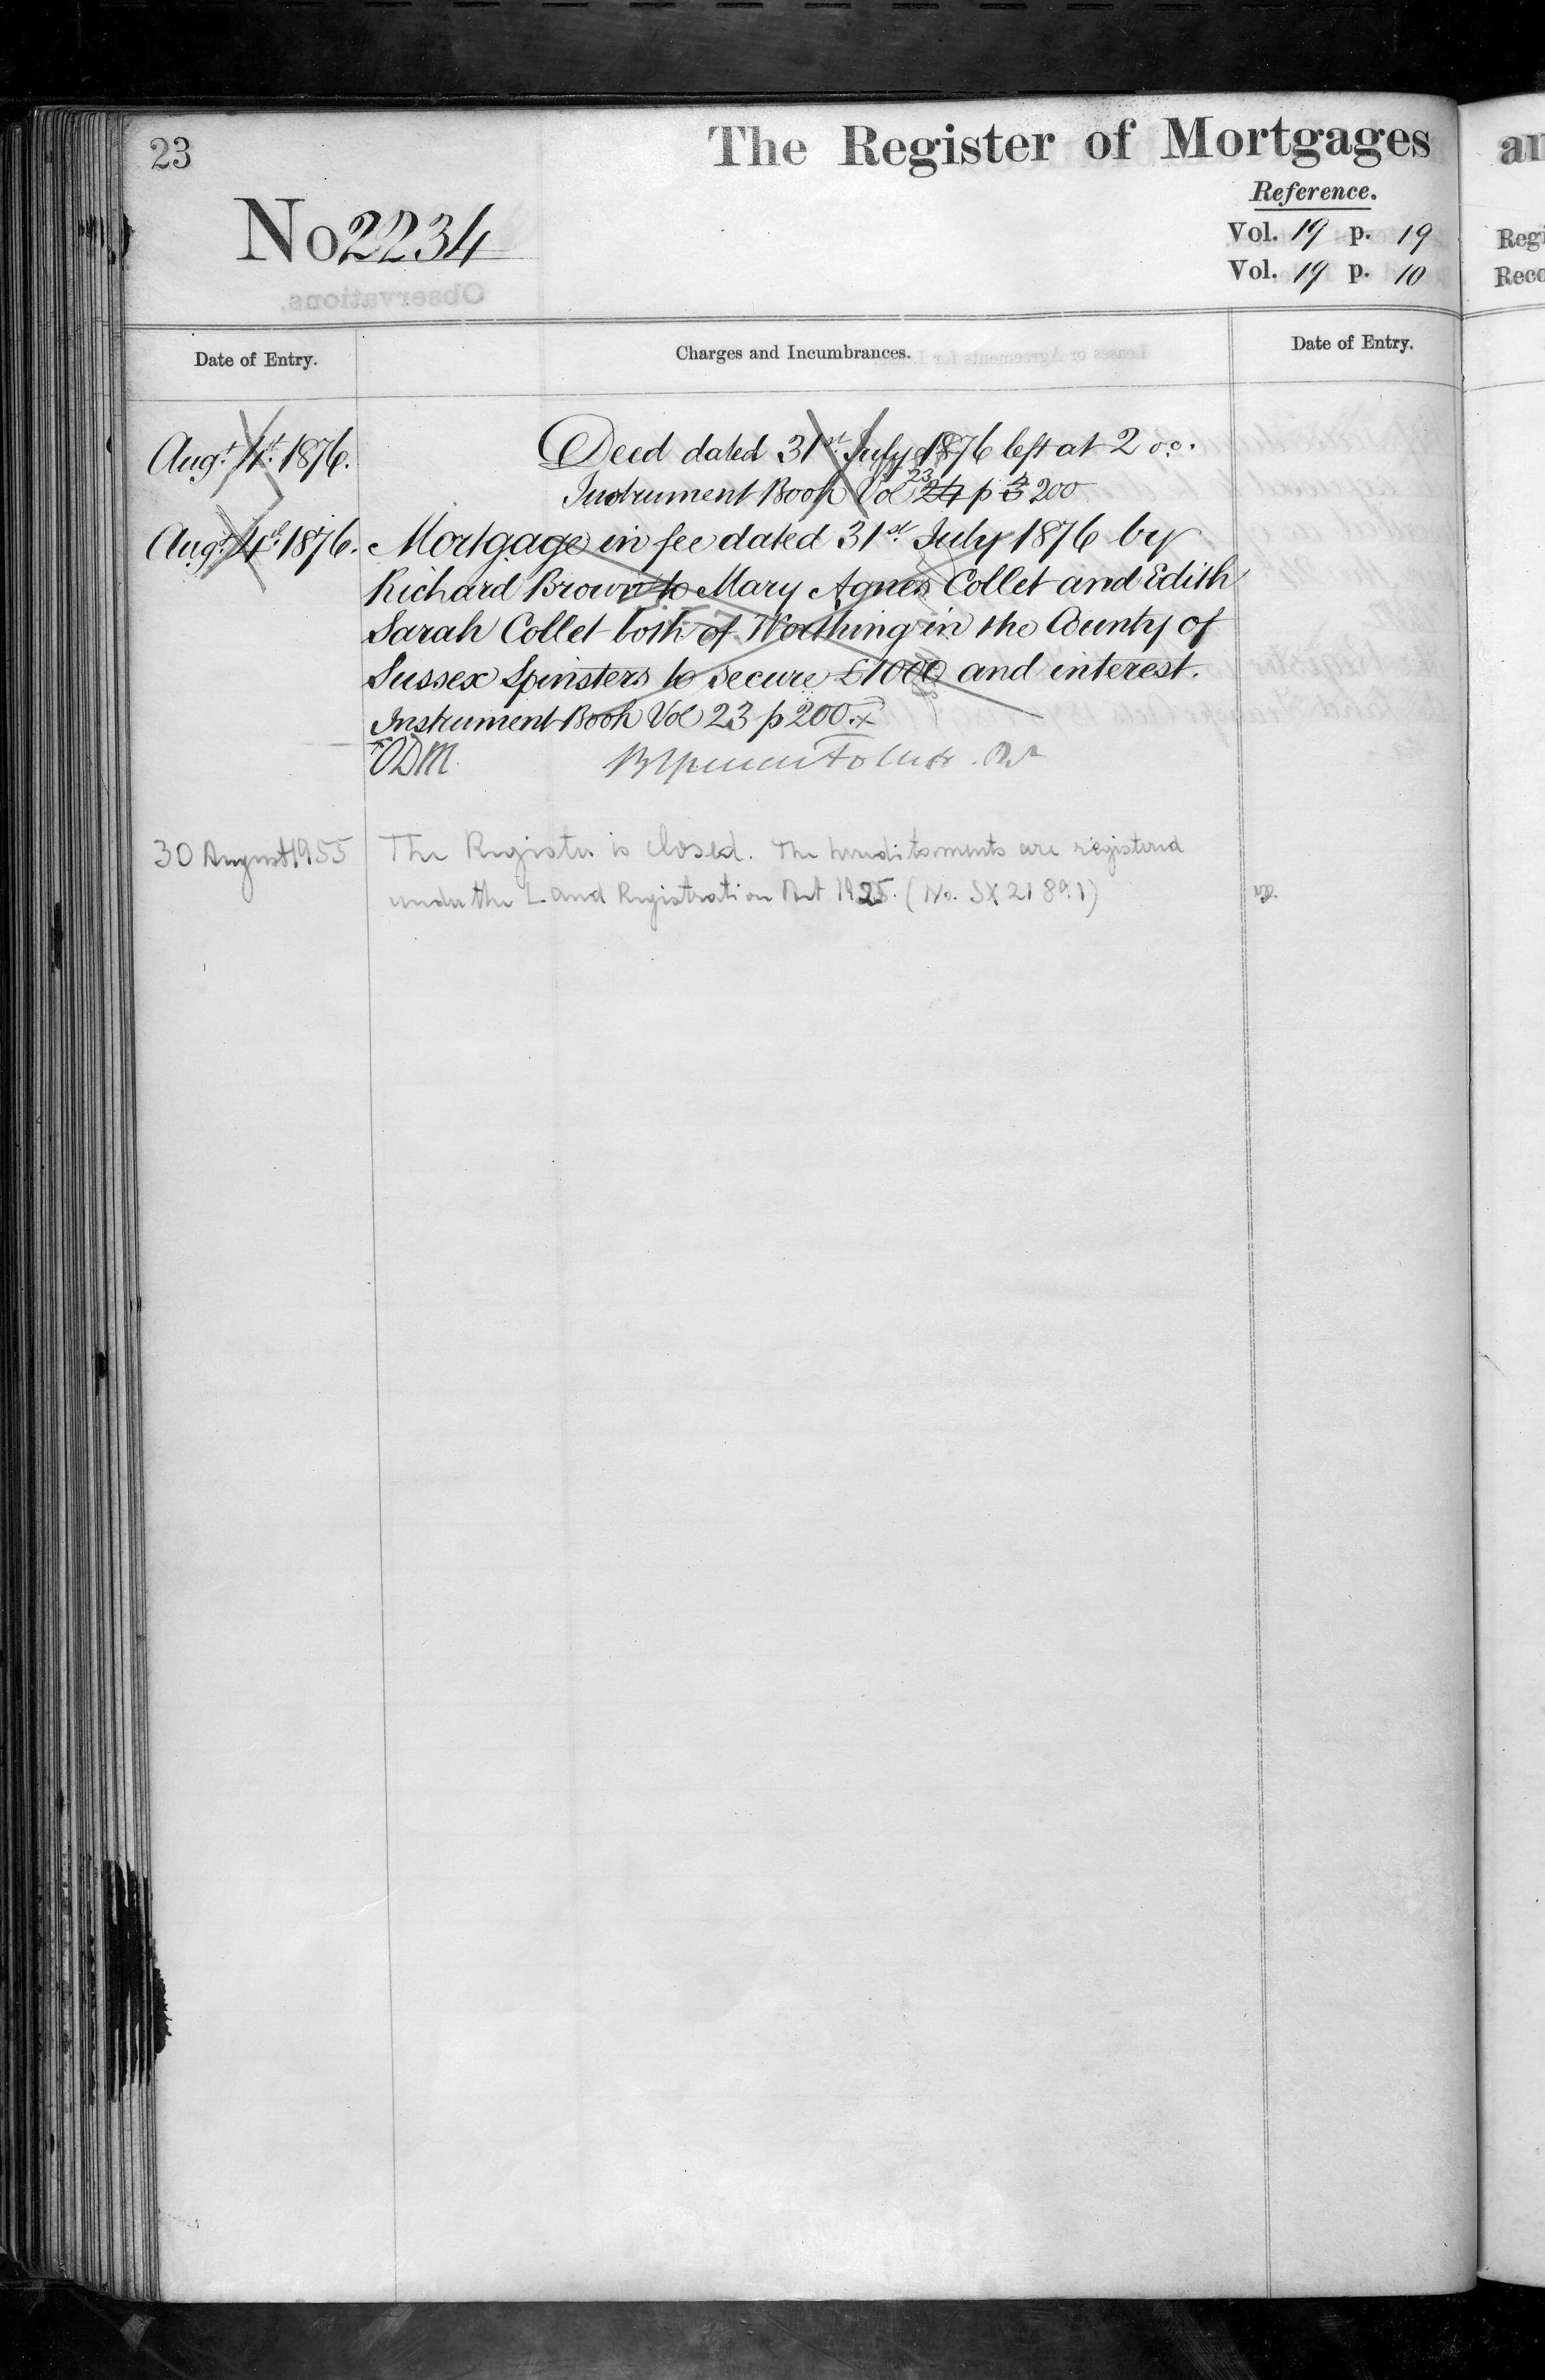 23
The Register of Mortgages
Reference.
No 2234
Vol. 19 p. 19
Vol. 19 p. 10
Date of Entry.
Charges and Incumbrances.
Date of Entry.
Augt. 4th. 1876.
Deed dated 31st July 1876 left at 2 o.c.
Instrument Book Vol 24 23 p 3 200
Augt. 4th. 1876.
Mortgage in fee dated 31st July 1876 by
Richard Brown to Mary Agnes Collet and Edith
Sarah Collet both of Worthing in the County of
Sussex Spinsters to secure £1000 and interest.
Instrument Book Vol 23 p 200.
30 August 1955
The Register is closed. The hereditaments are registered
under the Land Registration Act 1925. (No. SX 21891)
an
Regi
Reco